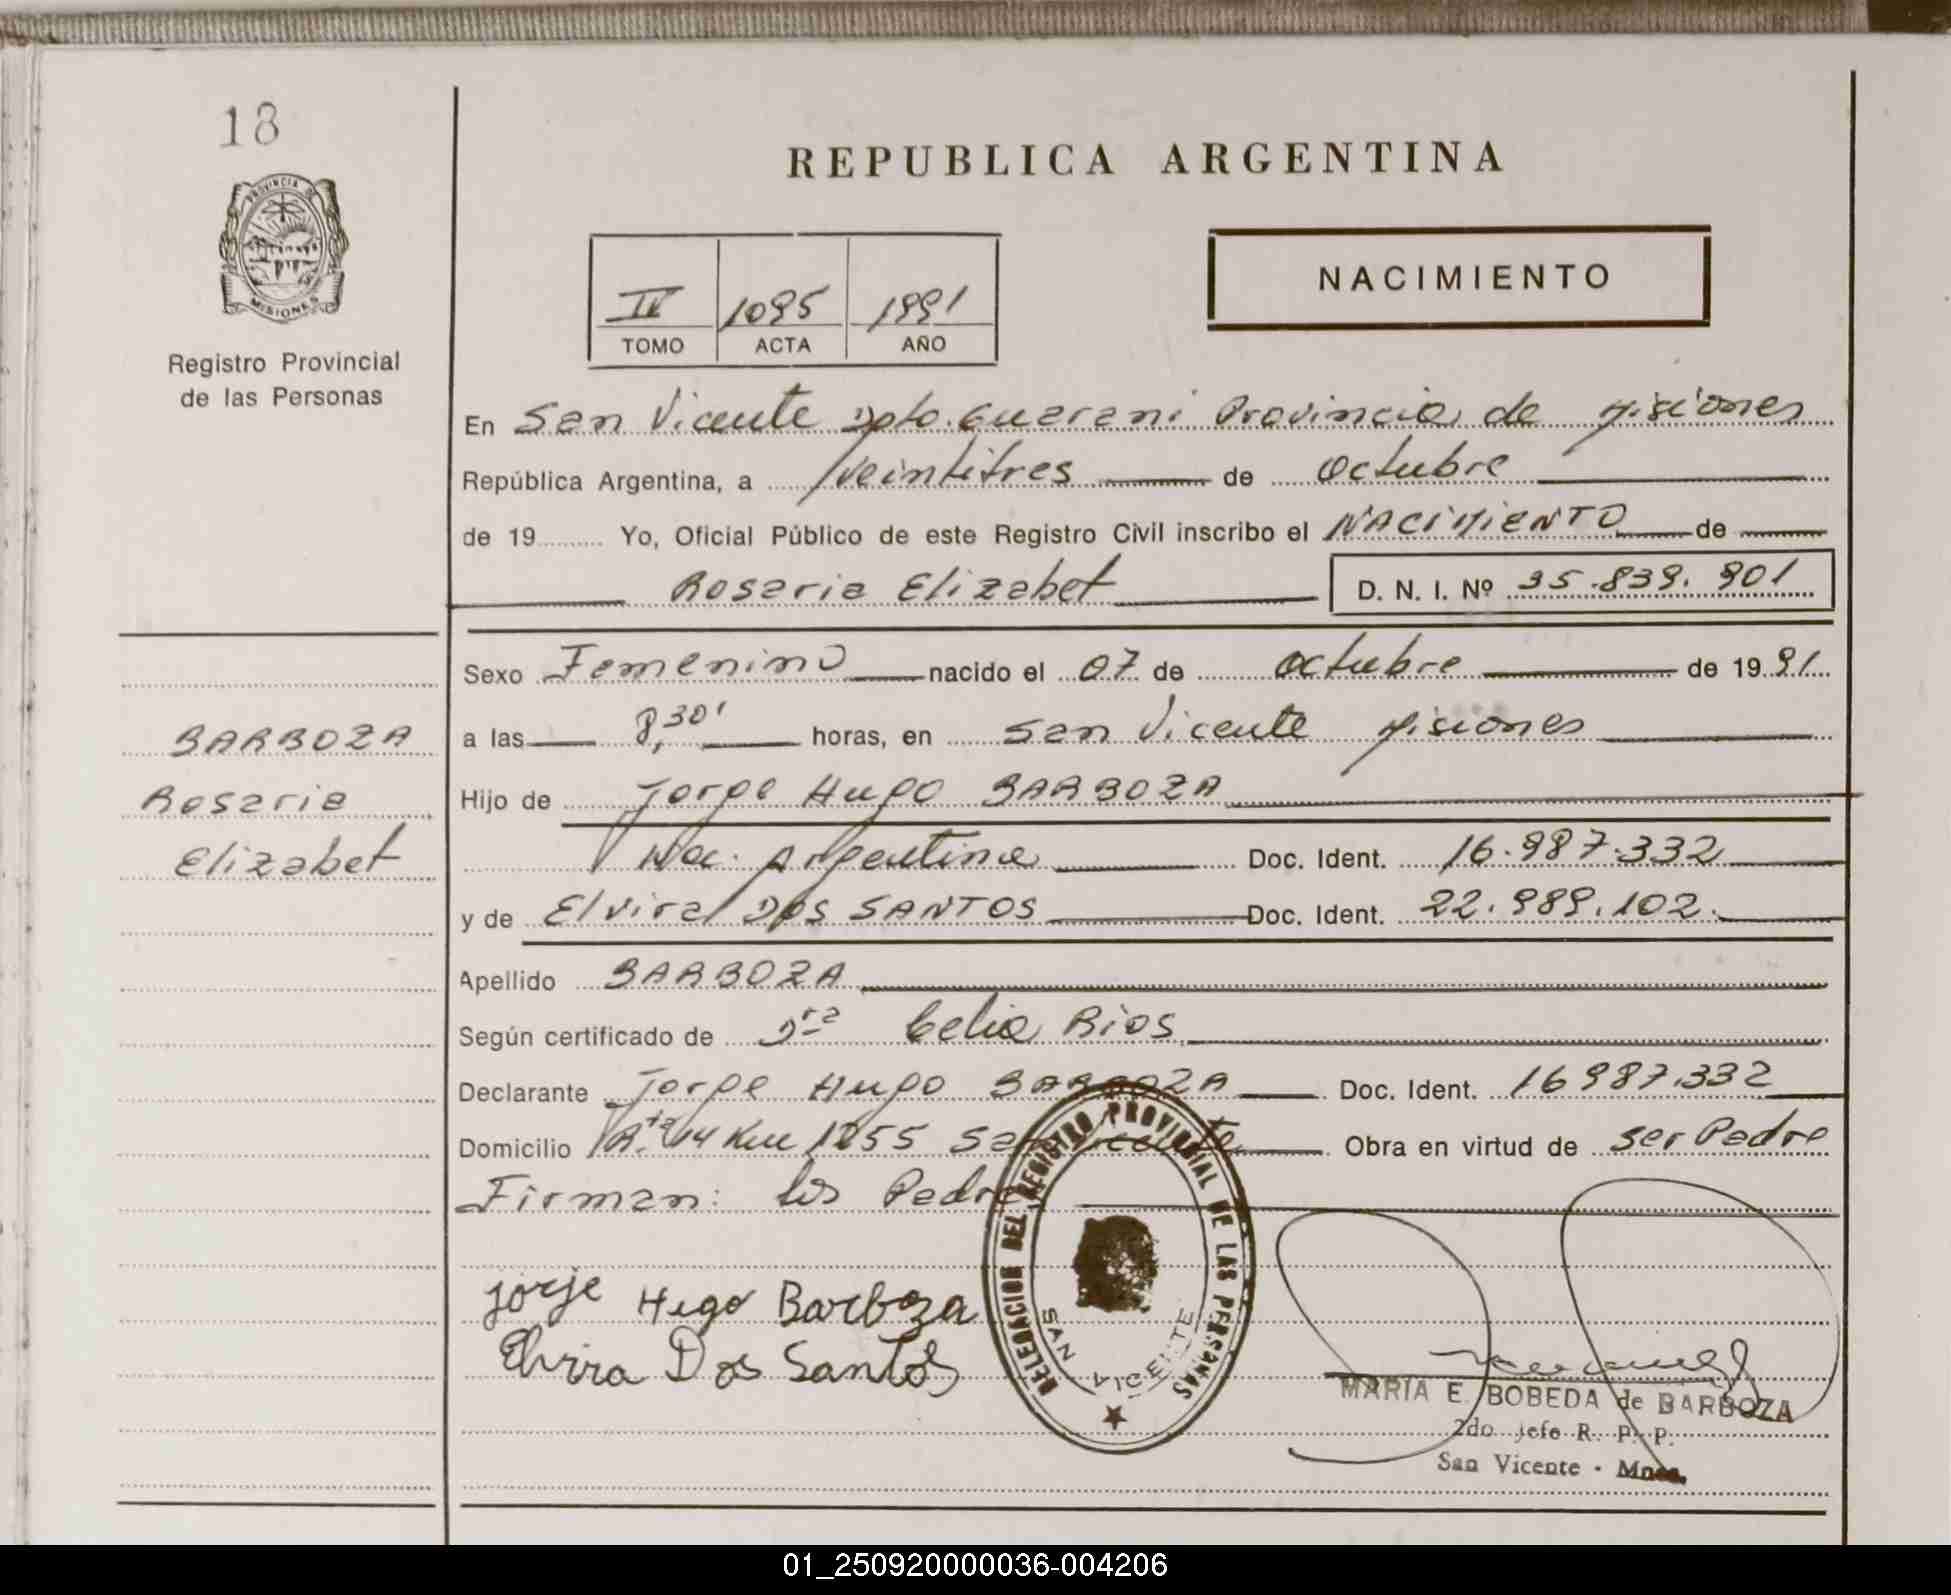 18
PROVINCIA DE
MISIONES
Registro Provincial
de las Personas
REPUBLICA ARGENTINA
NACIMIENTO
IV 1095 1991
TOMO ACTA AÑO
En San Vicente Dpto. Guarani Provincia de Misiones
República Argentina, a veintitres de octubre
de 19 Yo, Oficial Público de este Registro Civil inscribo el NACIMIENTO de
Rosaria Elizabet D. N. I. Nº 35.839.901
Sexo Femenino nacido el 07 de octubre de 1991
a las 8,30' horas, en San Vicente Misiones
BARBOZA
Rosaria
Elizabet
Hijo de Jorge Hugo BARBOZA
Nac. Argentina Doc. Ident. 16.987.332
y de Elvira DOS SANTOS Doc. Ident. 22.989.102.
Apellido BARBOZA
Según certificado de Dra Celia Rios
Declarante Jorge Hugo BARBOZA Doc. Ident. 16987.332
Domicilio Rta 14 Km 1255 San Vicente Obra en virtud de ser Padre
Firman: los Padres
jorje Hugo Barboza
Elvira Dos Santos
DELEGACION DEL REGISTRO PROVINCIAL DE LAS PERSONAS
SAN VICENTE
MARIA E. BOBEDA de BARBOZA
2do Jefe R. P. P.
San Vicente - Mnes.
01_250920000036-004206